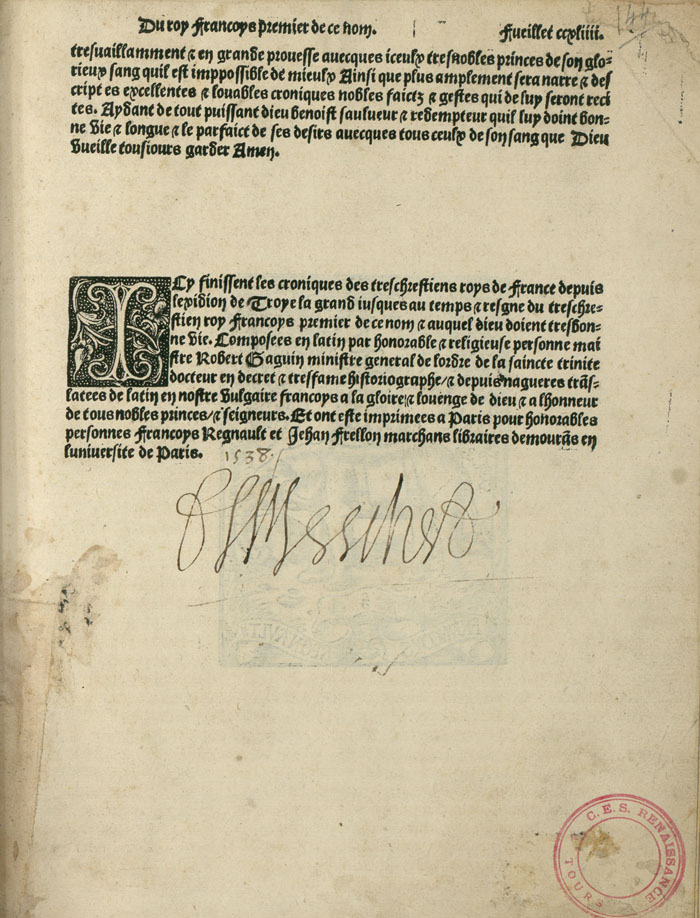 Du roy Francoys premier de ce nom. Fueillet ccxliiii.
tresuaillamment ⁊ en grande prouesse auecques iceulx tresnobles princes de son glo-
rieux sang quil est imppossible de mieulx Ainsi que plus amplement sera narre ⁊ des
cript es excellentes ⁊ louables croniques nobles faictz ⁊ gestes qui de luy seront reci
tes. Aydant de tout puissant dieu benoist saulueur ⁊ redempteur quil luy doint bon-
ne vie ⁊ longue ⁊ le parfaict de ses desirs auecques tous ceulx de son sang que Dieu
vueille tousiours garder Amen.
ICy finissent les croniques des treschrestiens roys de France depuis
lexidion de Troye la grand iusques au temps ⁊ resgne du treschre-
stien roy Francoys premier de ce nom ⁊ auquel dieu doient tresbon-
ne vie. Composees en latin par honorable ⁊ religieuse personne mai
stre Robert Gaguin ministre general de lordre de la saincte trinite
docteur en decret ⁊ tresfame historiographe/ ⁊ depuis nagueres trās-
latees de latin en nostre vulgaire francoys a la gloire ⁊ louenge de dieu ⁊ a lhonneur
de tous nobles princes/ ⁊ seigneurs. Et ont este imprimees a Paris pour honorables
personnes Francoys Regnault et Jehan Frellon marchans libraires demourās en
luniversite de Paris. 1538.
C.E.S. RENAISSANCE
TOURS